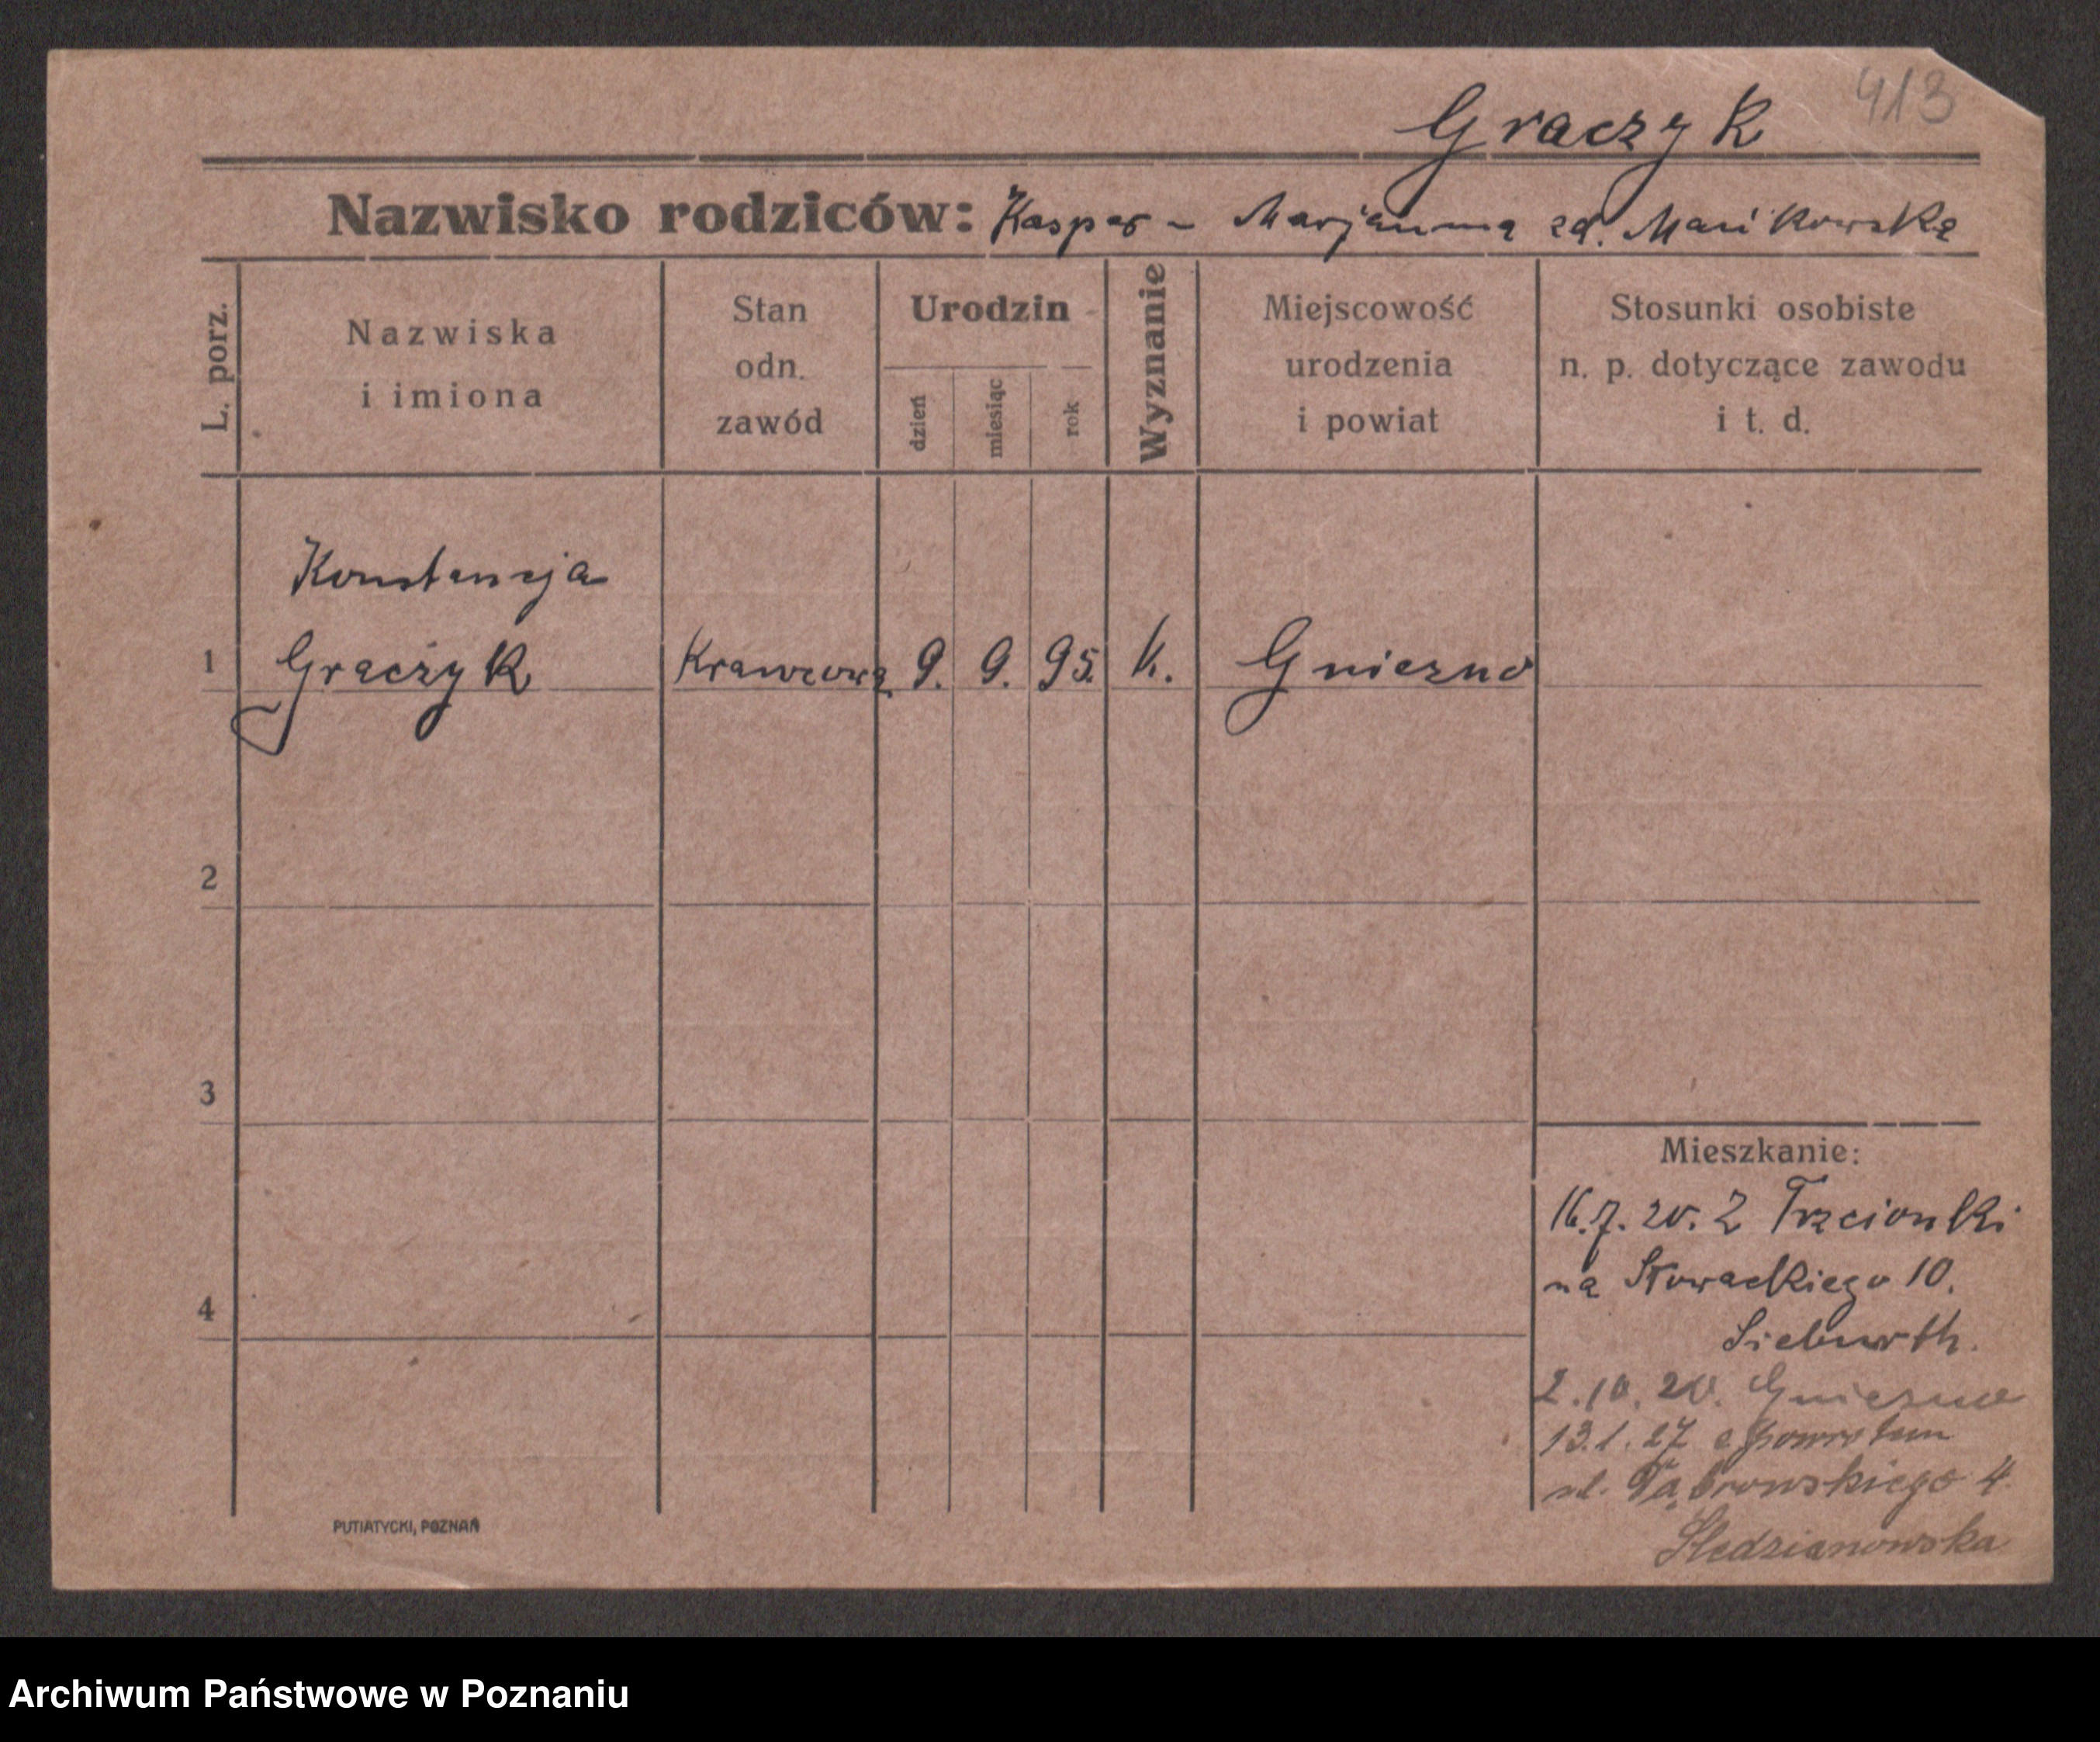 413
Graczyk
Nazwisko rodziców: Kasper - Marjanna zd. Mańkowska
L. porz.
Nazwiska
i imiona
Stan
odn.
zawód
Urodzin
dzień
miesiąc
rok
Wyznanie
Miejscowość
urodzenia
i powiat
Stosunki osobiste
n. p. dotyczące zawodu
i t. d.
Konstancja
1 Graczyk Krawcowa 9. 9. 95. k. Gniezno
2
3
4
Mieszkanie:
16.7.20. Z Trzcionki
na Słowackiego 10.
Sieburth.
2.10.20. Gniezno
13.1.27 z powrotem
ul. Dąbrowskiego 4.
Śledzianowska
PUTIATYCKI, POZNAŃ
Archiwum Państwowe w Poznaniu